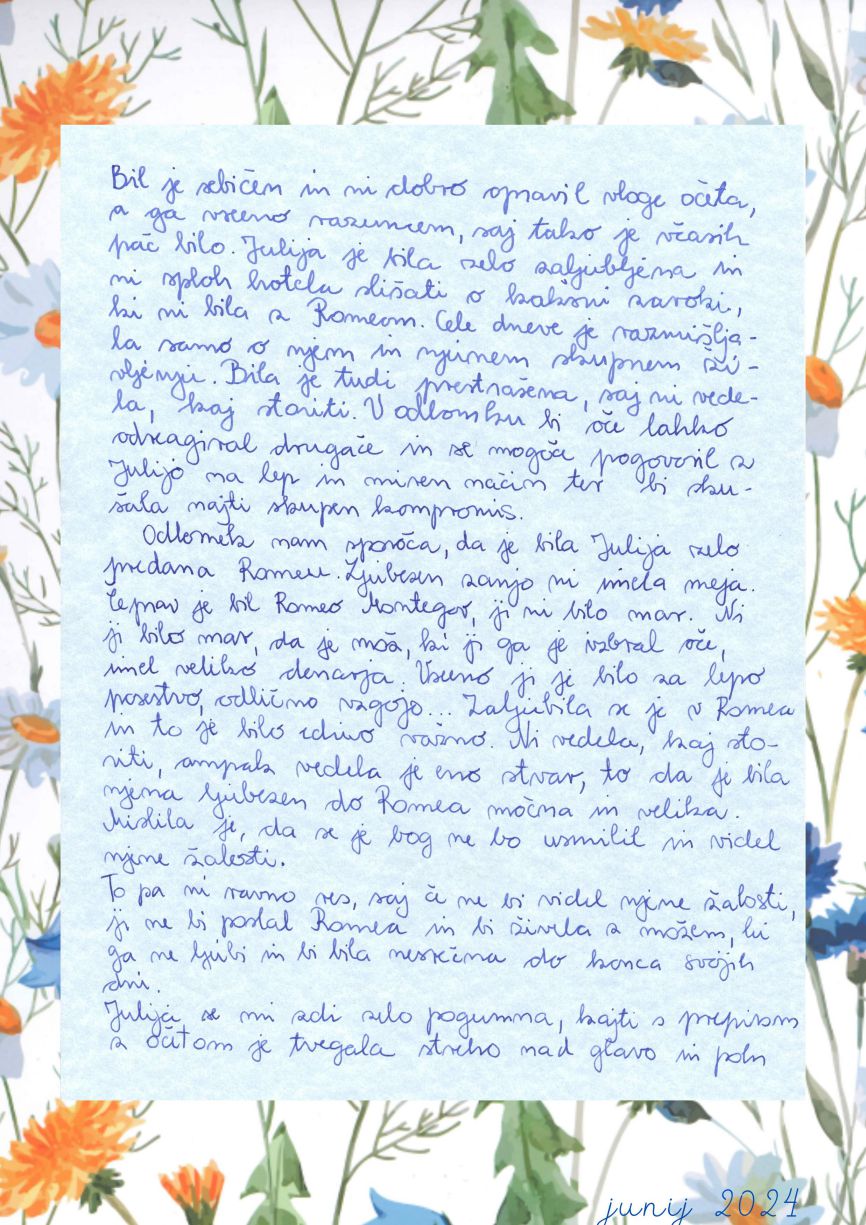 Bil je sebičen in ni dobro opravil vloge očeta,
a ga vseeno razumem, saj tako je včasih
pač bilo. Julija je bila zelo zaljubljena in
ni sploh hotela slišati o kakšni zaroki,
ki ni bila z Romeom. Cele dneve je razmišlja-
la samo o njem in njunem skupnem ži-
vljenju. Bila je tudi prestrašena, saj ni vede-
la, kaj storiti. V odlomku bi oče lahko
odreagiral drugače in se mogoče pogovoril z
Julijo na lep in miren način ter bi sku-
šala najti skupen kompromis.
Odlomek nam sporoča, da je bila Julija zelo
predana Romeu. Ljubezen zanjo ni imela meja.
Čeprav je bil Romeo Montegov, ji ni bilo mar. Ni
ji bilo mar, da je mož, ki ji ga je izbral oče,
imel veliko denarja. Vseeno ji je bilo za lepo
posestvo, odlično vzgojo... Zaljubila se je v Romea
in to je bilo edino važno. Ni vedela, kaj sto-
riti, ampak vedela je eno stvar, to da je bila
njena ljubezen do Romea močna in velika.
Mislila je, da se je bog ne bo usmilil in videl
njene žalosti.
To pa ni ravno res, saj če ne bi videl njene žalosti,
ji ne bi poslal Romea in bi živela z možem, ki
ga ne ljubi in bi bila nesrečna do konca svojih
dni.
Julija se mi zdi zelo pogumna, kajti s prepirom
z očetom je tvegala streho nad glavo in poln
junij 2024